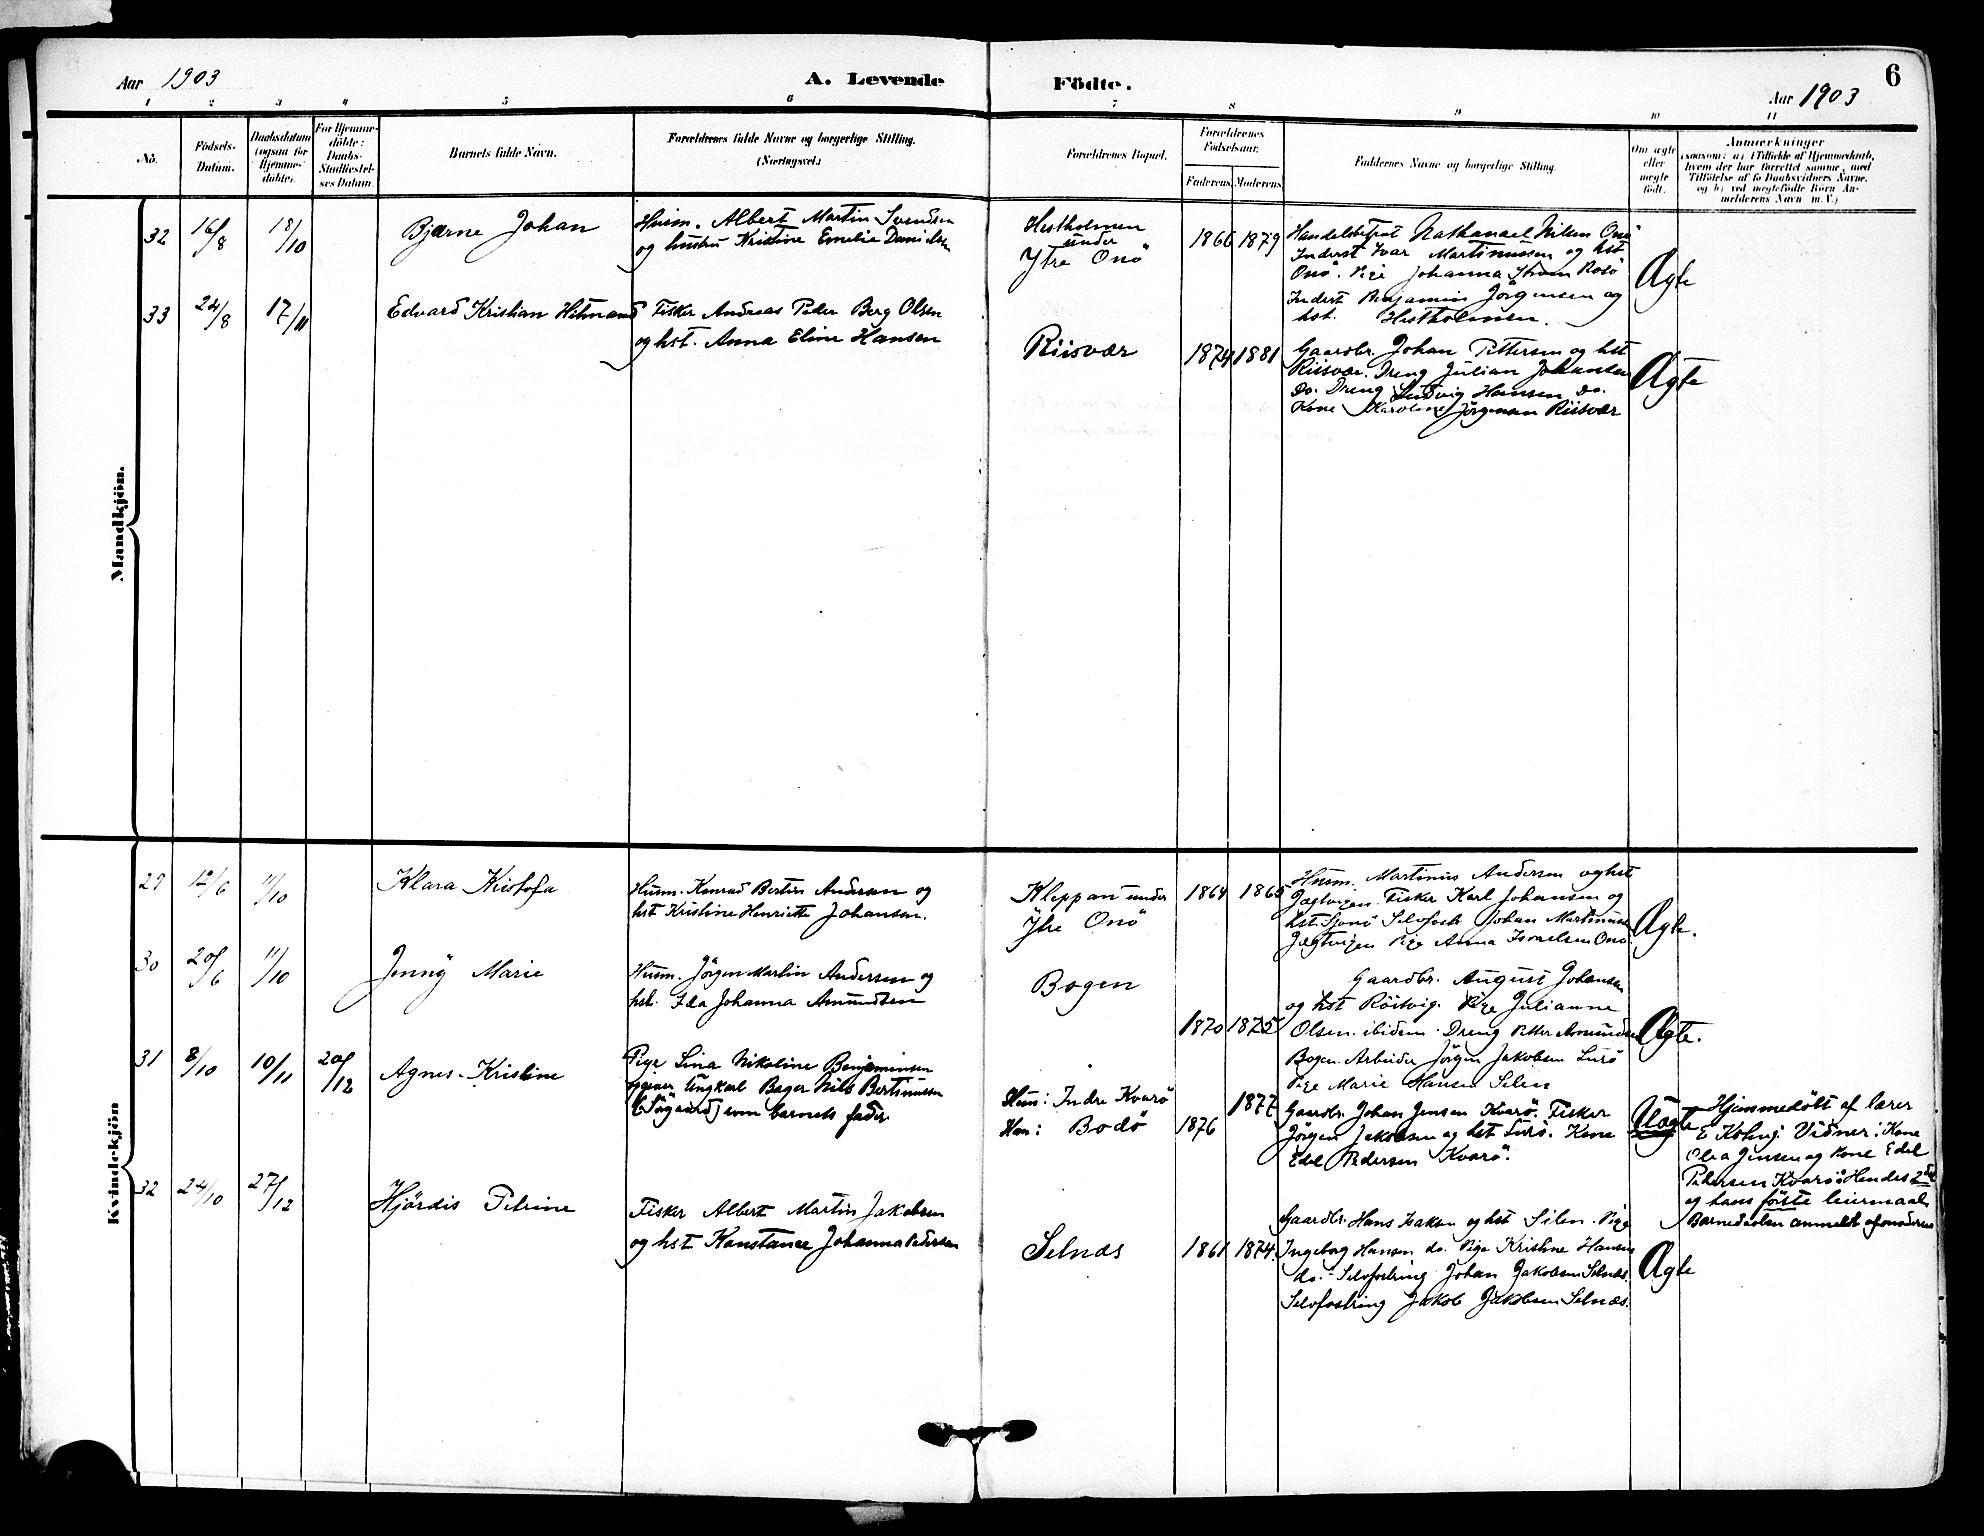 Aar 1903
A. Levende
Födte.
6
Aar 1903
1 2 3 4 5 6 7 8 9 10 11
No.
Födsels-
Datum.
Daabsdatum
(ogsaa for
Hjemme-
döbte).
For Hjemme-
döbte:
Daabs-
Stadfæstel-
ses Datum.
Barnets fulde Navn.
Forældrenes fulde Navne og borgerlige Stilling.
(Næringsvei.)
Forældrenes Bopæl.
Forældrenes
Födselsaar.
Faderens. Moderens.
Faddernes Navne og borgerlige Stilling.
Om ægte
eller
uægte
född.
Anmærkninger
(saasom: a) i Tilfælde af Hjemmedaab,
hvem der har forrettet samme, med
Tilföielse af to Daabsvidners Navne,
og b) ved uægtefödte Börn An-
melderens Navn m. V.)
Mandkjön.
32 16/8 18/10 Bjarne Johan
Husm. Albert Martin Svendsen
og hustru Kristine Emelie Danielsen
Hestholmen
under
Ytre Onö
1866 1879
Handelsbetrot Nathanael Nilsen Onö
Inderst Ivar Martinussen og hst
Onö. Pige Johanna Strøm Rosö
Inderst Benjamin Jörgensen og
hst. Hestholmen.
Ægte
33 24/8 17/11 Edvard Kristian Hitmand
Fisker Andreas Peder Berg Olsen
og hst. Anna Eline Hansen
Riisvær
1874 1881
Gaardbr. Johan Pettersen og hst
Riisvær. Dreng Julian Johansen
Do. Dreng Ludvig Hansen Do.
Kone Karoline Jörgensen Riisvær
Ægte
Kvindekjön
29 12/6 11/10 Klara Kristofa
Husm. Konrad Bertin Andersen og
hst Kristine Henriette Johansen.
Kleppan under
Ytre Onö
1864 1865
Husm. Martinus Andersen og hst
Jægtvigen. Fisker Karl Johansen og
hst. Sjonö Selvfostr Johan Martinussen
Jægtvigen Pige Anna Israelsen Onö.
Ægte.
30 20/6 11/10 Jenny Marie
Husm. Jörgen Martin Andersen og
hst. Ida Johanna Amundsen
Bogen
1870 1875
Gaardbr. August Johansen
og hst Röitvig. Pige Julianne
Olsen ibidem. Dreng Petter Amundsen
Bogen. Arbeider Jörgen Jakobsen Lurö
Pige Marie Hansen Selen
Ægte.
31 8/10 10/11 20/12 Agnes Kristine
Pige Lina Nikoline Benjaminsen
opgiver Ungkarl Bager Nils Bertinussen
(Sögaard) som barnets fader
Hun: Indre Kvarö
Han: Bodö
1876 1877
Gaardbr. Johan Jensen Kvarö. Fisker
Jörgen Jakobsen og hst Lurö. Kone
Edel Pedersen Kvarö.
Uægte
Hjemmedöbt af lærer
E. Vidner: Kone
Olea Jensen og Kone Edel
Pedersen Kvarö. Hendes 2det
og hans förste leiermaal
Barnedaaben anmeldt af moderen
32 24/10 27/12 Hjördis Petrine
Fisker Albert Martin Jakobsen
og hst Konstance Johanna Pedersen
Selnæs
1861 1874.
Gaardbr. Hans Isaksen og hst Silen. Pige
Ingeborg Hansen do. Pige Kristine Hansen
do. Selvfostring Johan Jakobsen Selnæs.
Selvfostring Jakob Jakobsen Selnæs.
Ægte